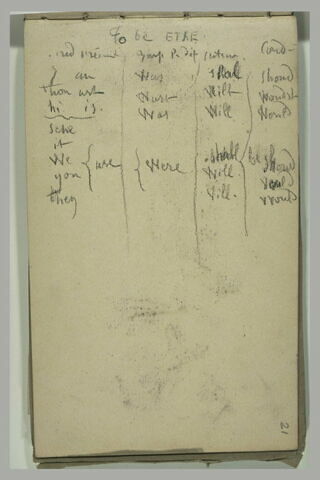 To be ETRE.
Prést Imp. P. déf futur Cond
I am Was Shall Should
thou art Wast Wilt Wouldst
hi is. Was Will Would
sche
it
We are Were shall be Should
you Will Would
they Will. Would
21